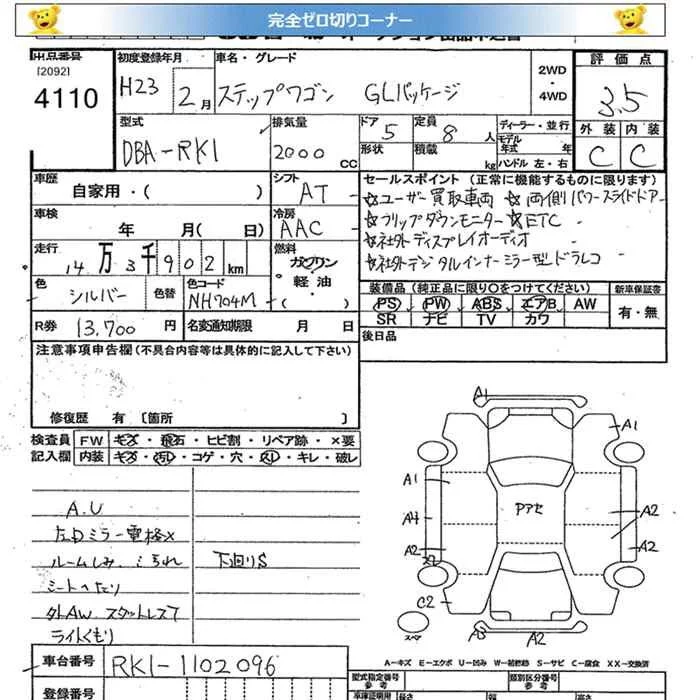 完全ゼロ切りコーナー
出品番号
[2092]
4110
初度登録年月
H23 2月
車名・グレード
ステップワゴン GLパッケージ
2WD
・
4WD
評価点
3.5
外装 内装
C C
型式
DBA-RK1
排気量
2000 CC
ドア 5
形状
定員 8人
積載 kg
ディーラー・並行
モデル年式 年
ハンドル 左・右
車歴
自家用・( )
シフト
AT
車検
年 月( 日)
冷房
AAC
走行
14万3千902km
燃料
ガソリン
・
軽油
色
シルバー
色替
色コード
NH704M
R券 13,700円
名変通知期限 月 日
セールスポイント (正常に機能するものに限ります)
☆ユーザー買取車両 ☆両側パワースライドドアー
☆フリップダウンモニター ☆ETC
☆社外ディスプレイオーディオ
☆社外デジタルインナーミラー型ドラレコ
装備品 (純正品に限り○をつけてください)
PS PW ABS エアB AW
SR ナビ TV カワ
新車保証書
有・無
後日品
注意事項申告欄(不具合内容等は具体的に記入して下さい)
修復歴 有 〔箇所 〕
検査員記入欄
FW キズ・飛石・ヒビ割・リペア跡・×要
内装 キズ・汚れ・コゲ・穴・スレ・キレ・破レ
A.U
左Dミラー電格×
ルームしみ、こすれ 下廻りS
シートへたり
外AW スタットレス7
ライトくもり
A1
A1
A1
Pアセ
A4
A2
A2
A2
C2
スペア
A3
A2
A-キズ E-エクボ U-凹み W-補修跡 S-サビ C-腐食 XX-交換済
車台番号
RK1-1102096
登録番号
型式指定番号
参考
類別区分番号
参考
車庫証明用
参考
長さ
幅
高さ